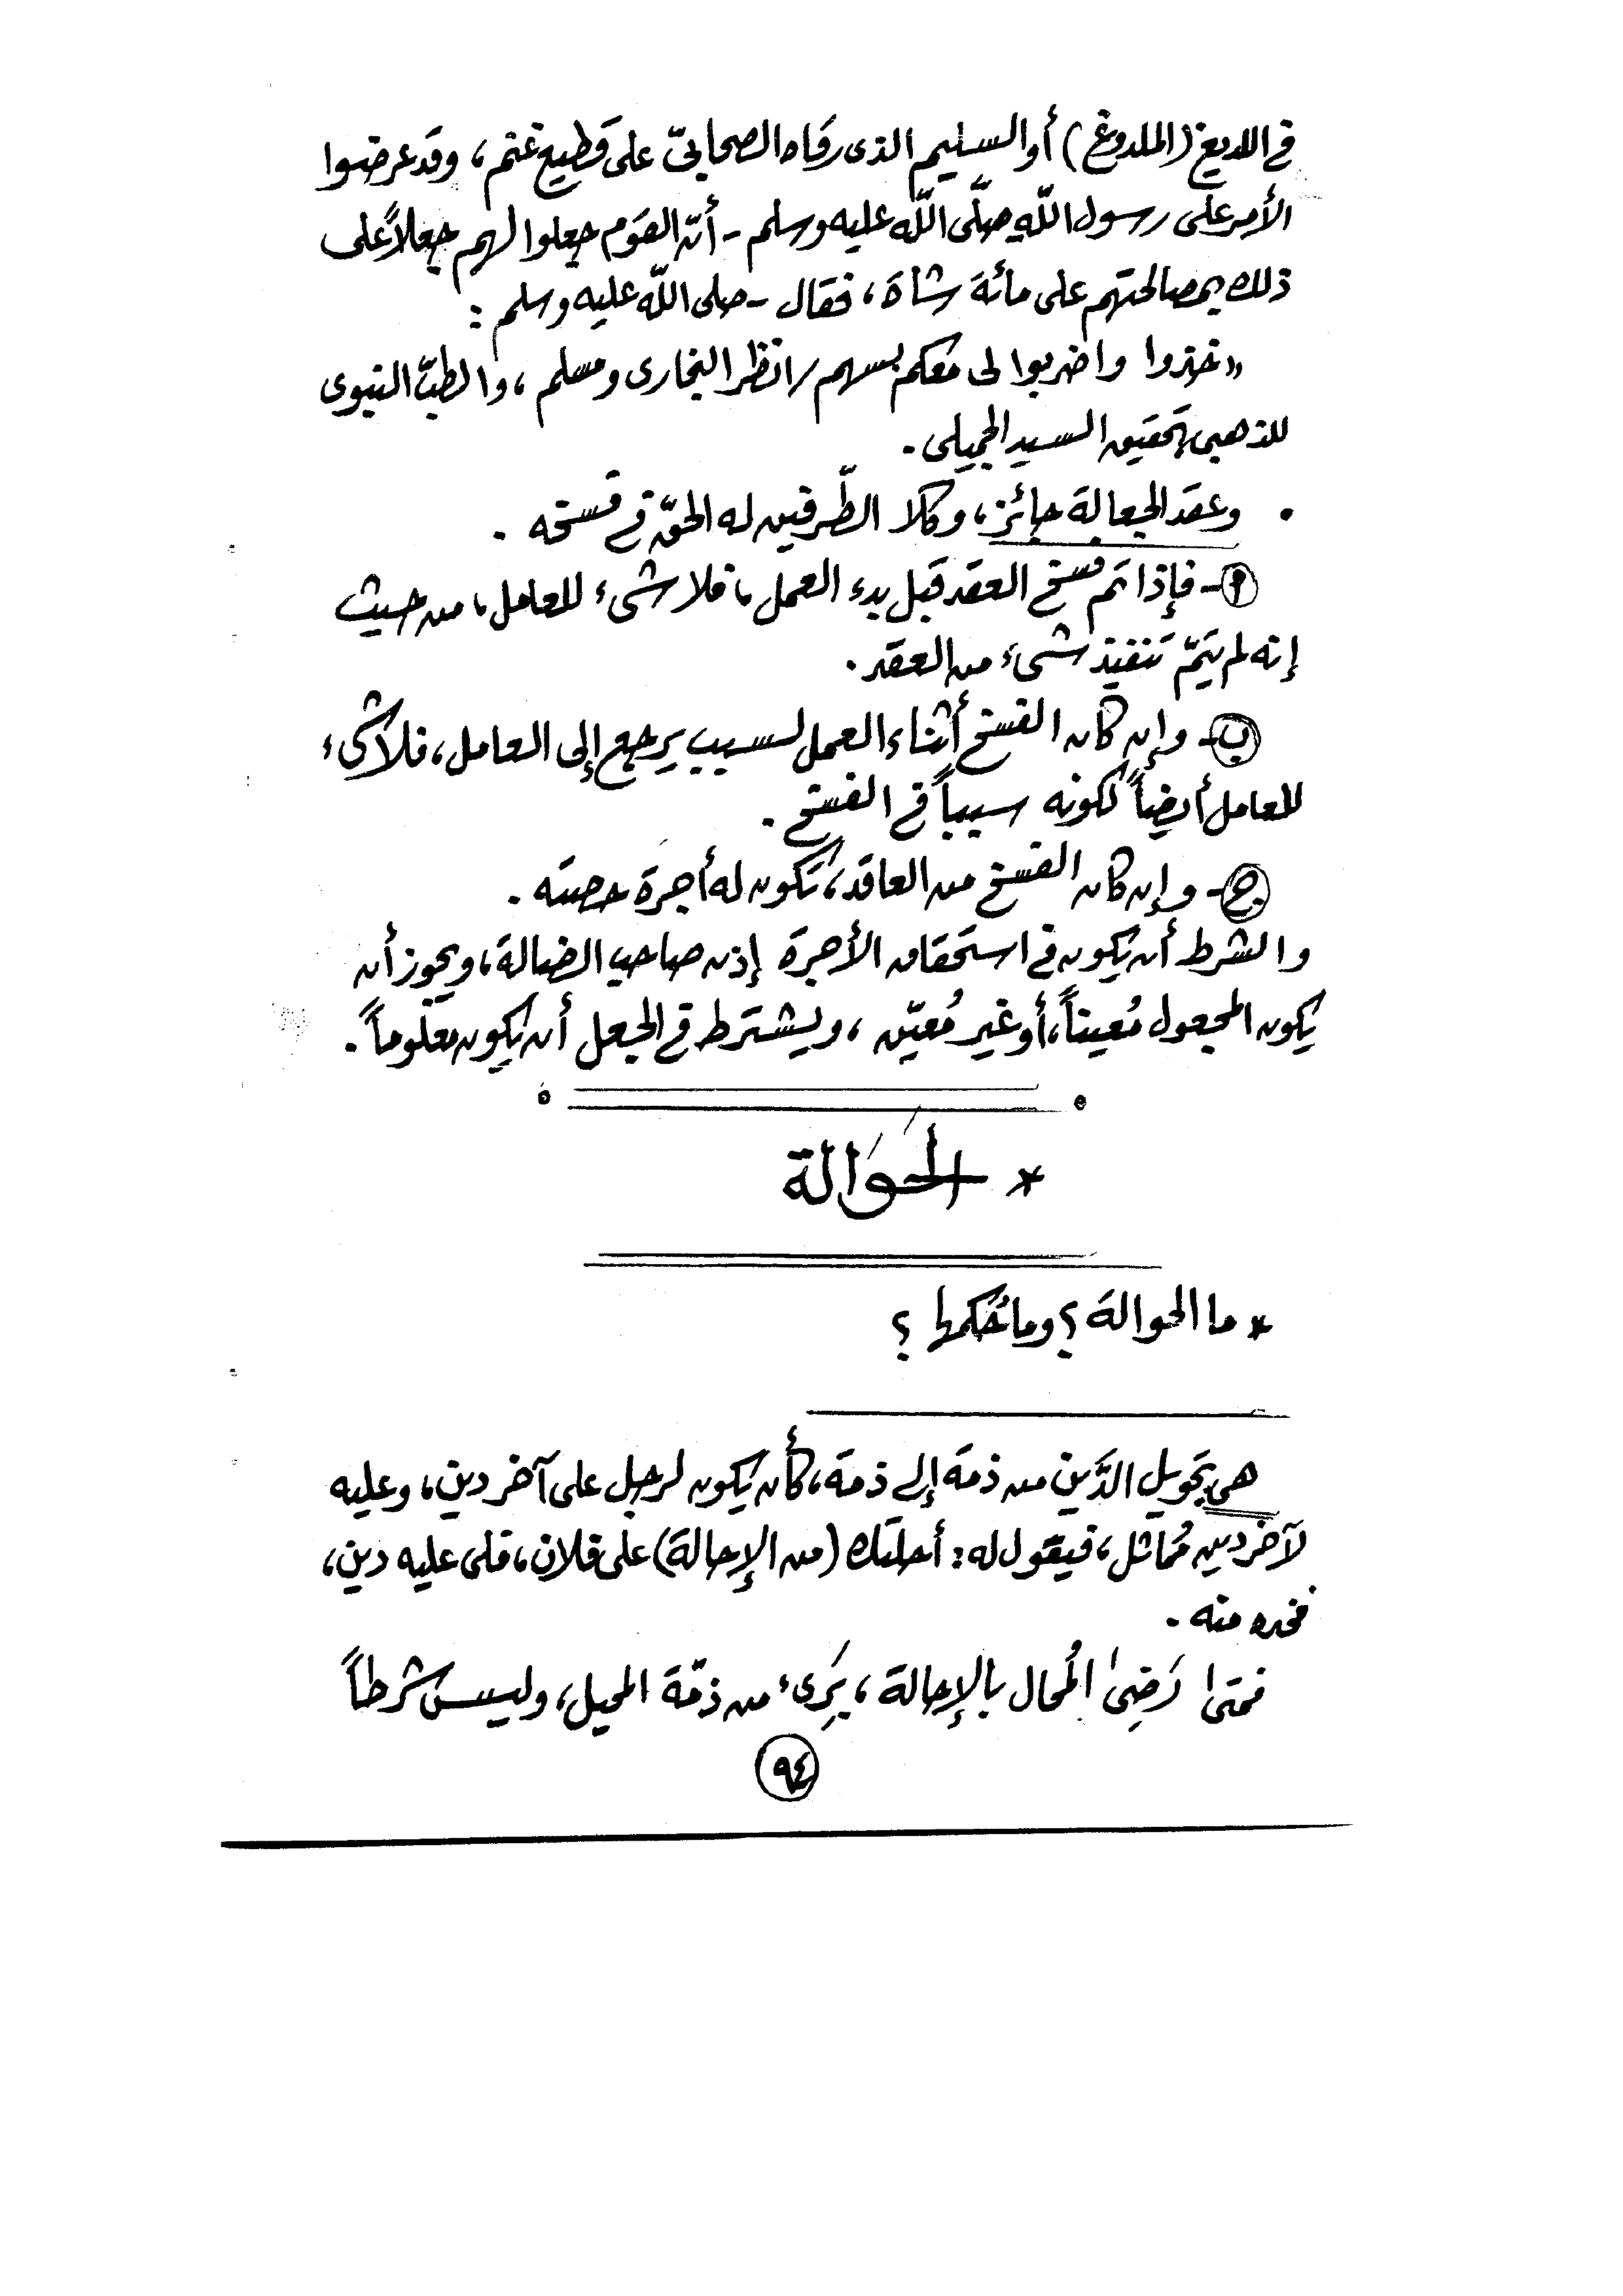 فى اللديغ (الملدوغ) أو السليم الذى رقاه الصحابىّ على قطيع غنم، وقد عرضوا
الأمر على رسول اللّه صلّى اللّه عليه وسلم - أنّ القوم جعلوا لهم جعلاً على
ذلك بمصالحتهم على مائة شاة، فقال - صلى اللّه عليه وسلم :
«خذوا واضربوا لى معكم بسهم / انظر البخارى ومسلم، والطبّ النبوى
للذهبى بتحقيق السيد الجميلى.
• وعقد الجعالة جائز، وكلا الطّرفين له الحقّ فى فسخه .
(أ) - فإذا تم فسخ العقد قبل بدء العمل، فلا شىء للعامل، من حيث
إنه لم يتمّ تنفيذ شىء من العقد.
(ب) - وإن كان الفسخ أثناء العمل لسبب يرجع إلى العامل، فلا شىء
للعامل أيضاً لكونه سبباً فى الفسخ .
(ج) - وإن كان الفسخ من العاقد، تكون له أجرة حصته .
والشرط أن يكون فى استحقاق الأجرة إذن صاحب الضالة، ويجوز أن
يكون المجعول مُعيناً، أو غير مُعيّن، ويشترط فى الجعل أن يكون معلوماً.
* الحَوَالة
* ما الحوالة؟ وما حُكمها؟
هى تحويل الدَّين من ذمة إلى ذمة، كأن يكون لرجل على آخر دين، وعليه
لآخر دين مُماثل، فيقول له: أحلتك (من الإحالة) على فلان، فلى عليه دين،
فخده منه .
فمتى رَضِىَ المُحال بالإحالة، بَرِىء من ذمّة المحيل، وليس شرطاً
٩٤